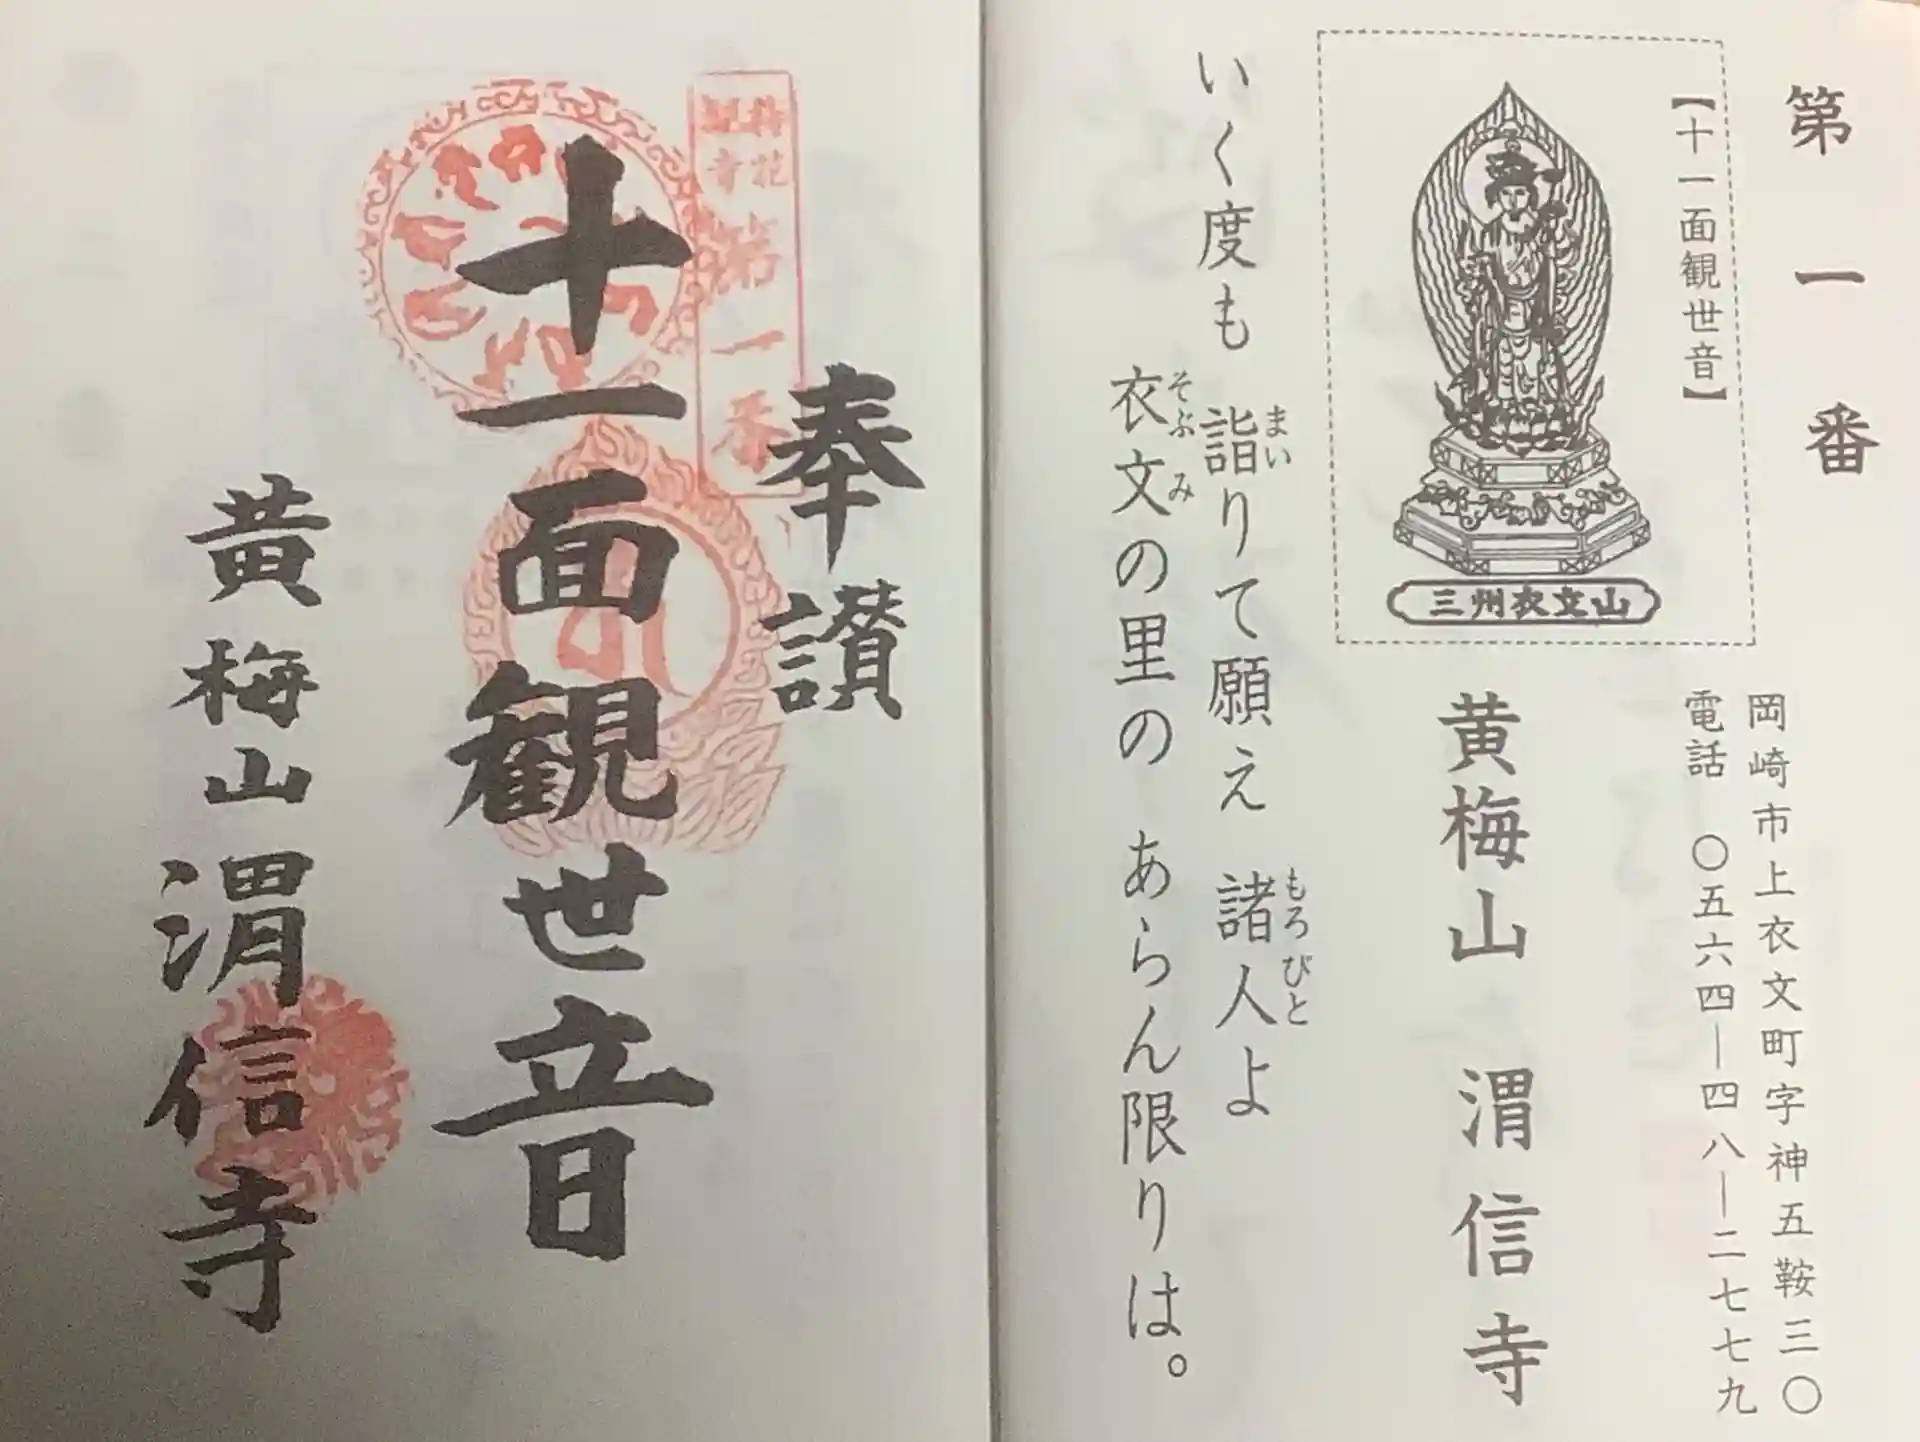 第一番
【十一面観世音】
三州衣文山
岡崎市上衣文町字神五鞍三〇
電話 〇五六四―四八―二七七九
黄梅山 渭信寺
いく度も 詣りて願え 諸人よ
まい
もろびと
衣文の里の あらん限りは。
そぶみ
奉讃
第一番
十一面観世音
黄梅山渭信寺